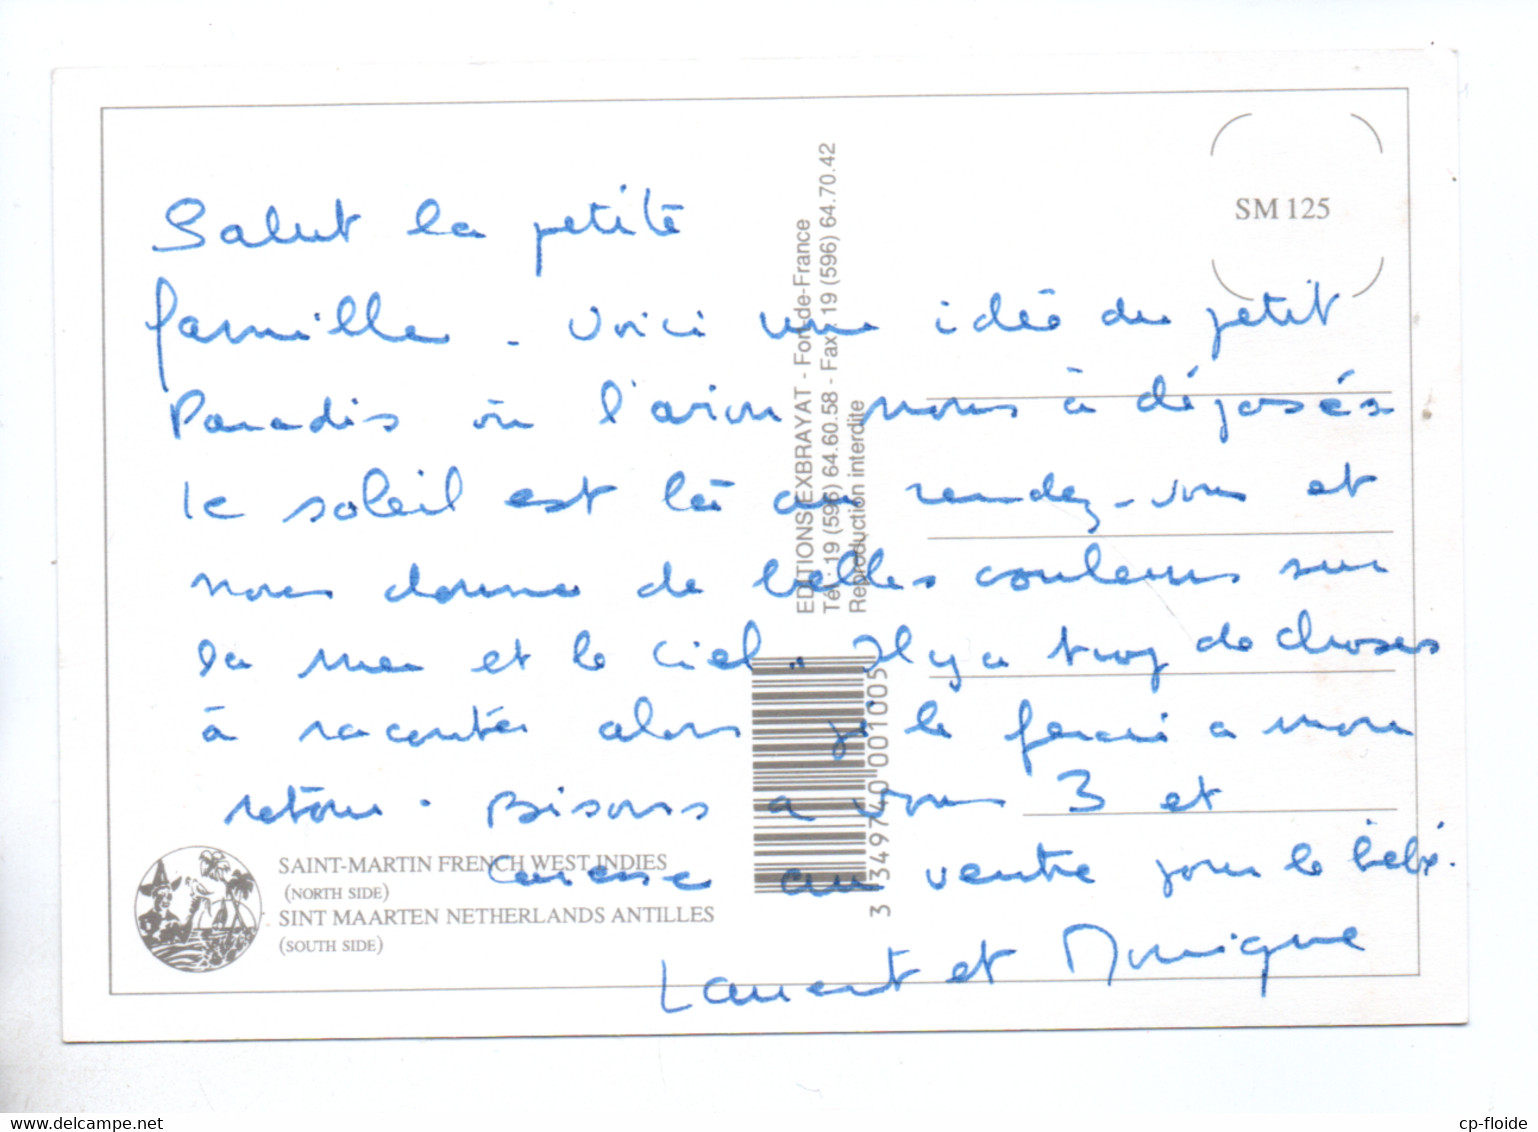 SM 125
Salut la petite
famille - voici une idée du petit
Paradis où l'avion nous à déposés
le soleil est là au rendez-vous et
nous donne de belles couleurs sur
la mer et le ciel. Il y a trop de choses
à raconter alors je le ferai a mon
retour. Bisous a vous 3 et
caresse au ventre pour le bébé.
Laurent et Monique
EDITIONS EXBRAYAT - Fort-de-France
Tél : 19 (596) 64.60.58 - Fax : 19 (596) 64.70.42
Reproduction interdite
3 349740 001005
SAINT-MARTIN FRENCH WEST INDIES
(NORTH SIDE)
SINT MAARTEN NETHERLANDS ANTILLES
(SOUTH SIDE)
www.delcampe.net
cp-floide